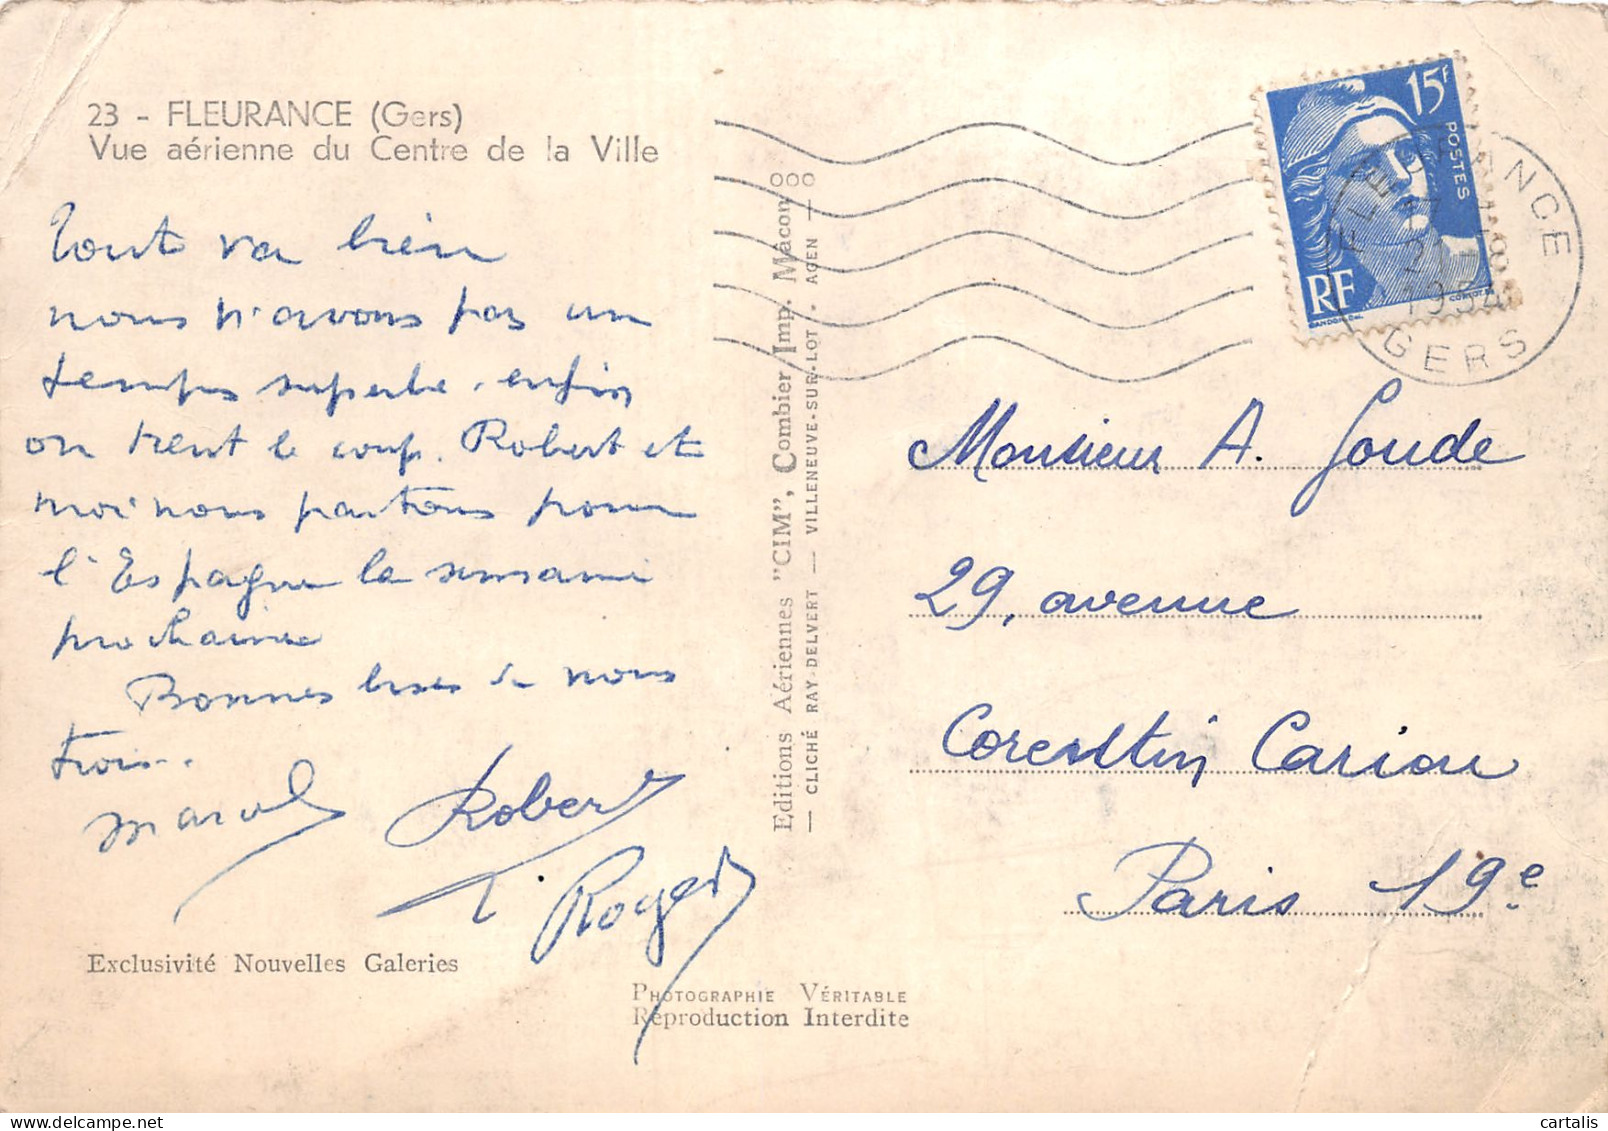 23 - FLEURANCE (Gers)
Vue aérienne du Centre de la Ville
Tout va bien
nous n'avons pas un
temps superbe. enfin
on tient le coup. Robert et
moi nous partons pour
l'Espagne la semaine
prochaine
Bonnes bises de nous
trois.
Marcel
Robert
Roger
Exclusivité Nouvelles Galeries
PHOTOGRAPHIE VÉRITABLE
Réproduction Interdite
Editions Aériennes "CIM", Combier Imp. Mâcon
— CLICHÉ RAY-DELVERT — VILLENEUVE-SUR-LOT . AGEN —
15F
POSTES
RF
GANDON.DEL.
FLEURANCE
1954
GERS
Monsieur A. Goude
29, avenue
Corentin Cariou
Paris 19e
cartalis